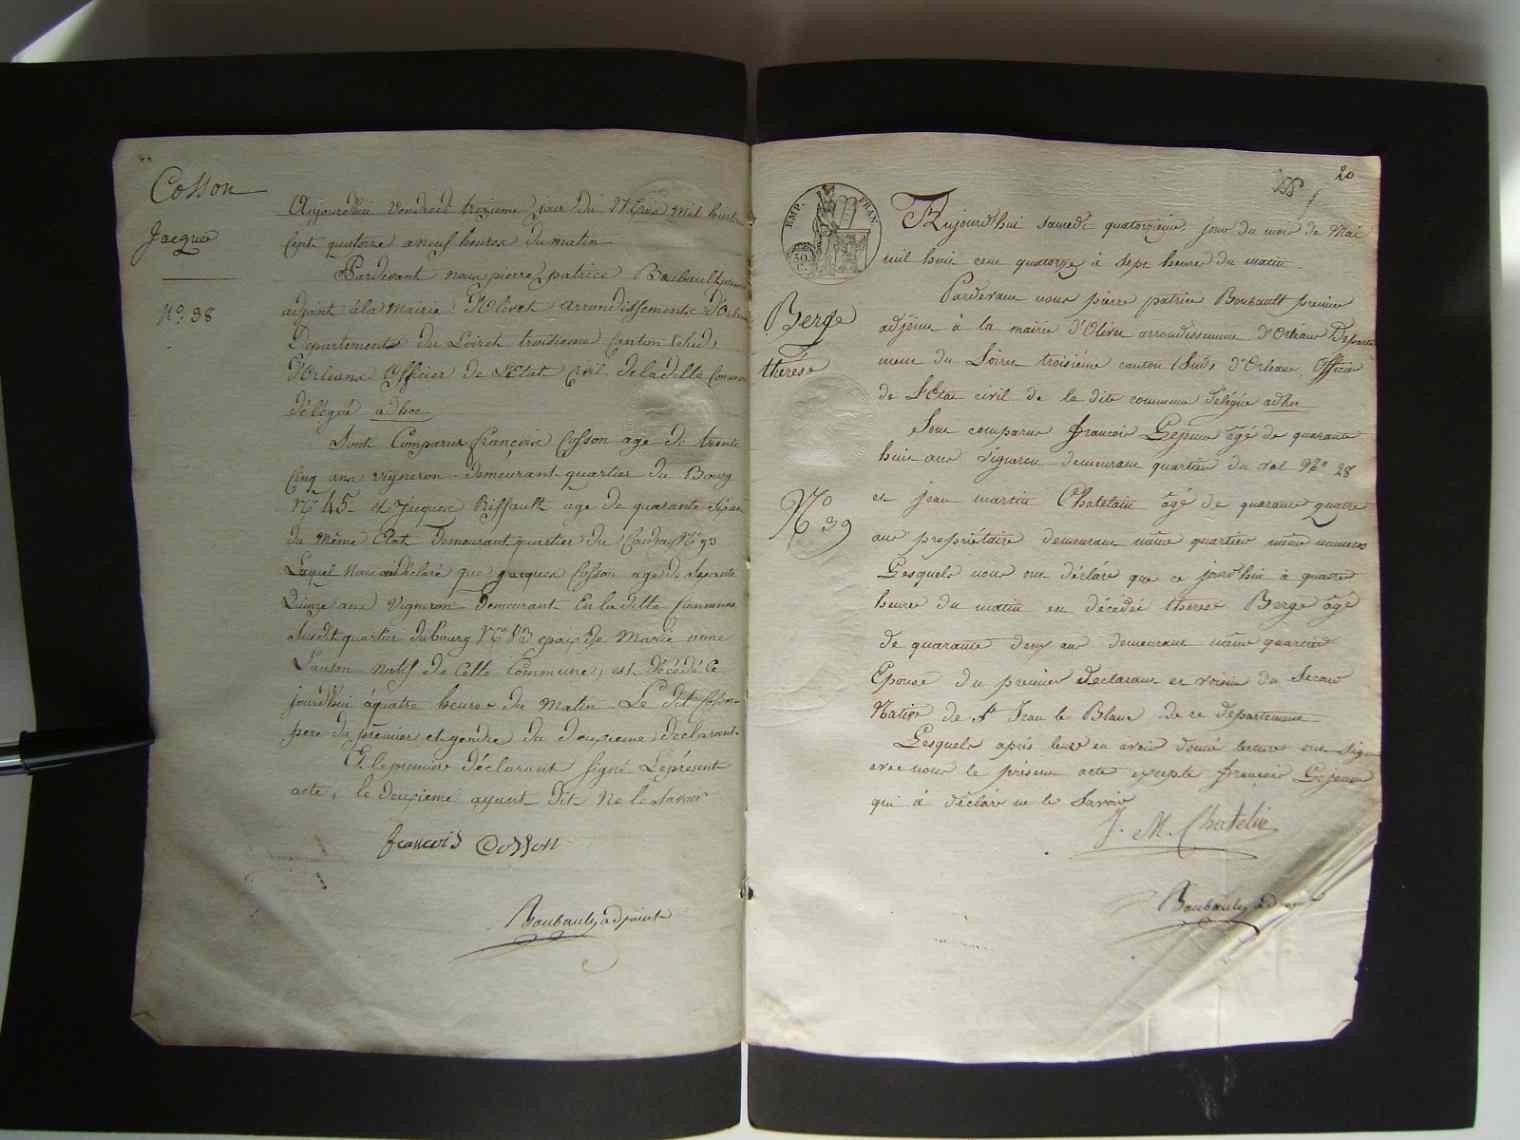 Cosson
Jacques
No. 38
Aujourdhui vendredi treizieme jour du Mois mil huit
cent quatorze a neuf heures du matin
Pardevant nous pierre patrice Boubault
adjoint à la Mairie d'Olivet arrondissement d'Orleans
Departement du Loiret troisieme canton sud
d'Orleans Officier de l'Etat Civil de la ditte Commune
délégué ad hoc
Sont Comparus françois Cosson age de trente
Cinq ans vigneron demeurant quartier du Bourg
No 45 et Jacques Riffault age de quarante
du Même Etat Demeurant quartier du No 93
Lequel Nous a déclaré que Jacques Cosson age de Soixante
Quinze ans Vigneron Demeurant En la ditte Commune
Susdit quartier du bourg No epoux de Marie anne
natif de Cette Commune, est décédé Ce
jourdhui à quatre heures du Matin Le dit Cosson
pere du premier et gendre du deuxieme déclarant
Et le premier déclarant Signé Le présent
acte, le deuxieme ayant Dit Ne le Savoir
francois Cosson
Boubault adjoint
20
EMP. FRAN.
Berge
thérese
No
39
Aujourd'hui samedi quatorzieme jour du mois de Mai
mil huit cent quatorze à sept heure du matin
Pardevant nous pierre patrice Boubault premier
adjoint à la mairie d'Olivet arrondissement d'Orléans Departe
ment du Loiret troisiéme canton (Sud) d'Orleans. Officier
de l'Etat civil de la dite commune délégué ad hoc
Sont comparus francois Lejeune âgé de quarante
huit ans vigneron demeurant quartier du val No 28
et jean martin Chatelain âgé de quarante quatre
ans propriétaire demeurant même quartier même numero
Lesquels nous ont déclaré que ce jourd'hui à quatre
heures du matin est décédée thérese Berge âgé
de quarante deux ans demeurant même quartier
Epouse du premier declarant et voisin du Second
Native de St Jean le Blanc de ce departement
Lesquels après leur en avoir donné lecture ont signé
avec nous le présent acte excepté francois Lejeune
qui à déclaré ne le Savoir
J. M. Chatelin
Boubault adjoint